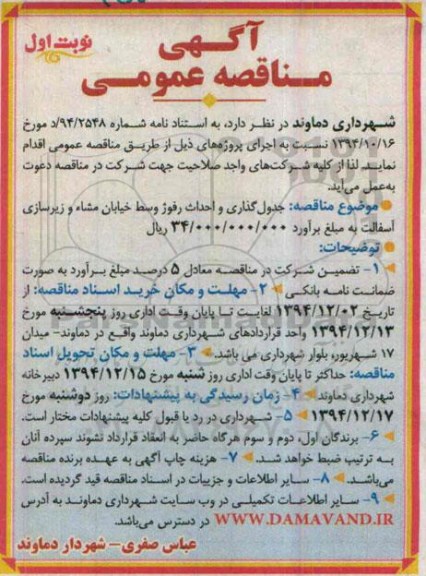 آگهی
مناقصه عمومی
نوبت اول
شهرداری دماوند در نظر دارد، به استناد نامه شماره ۹۴/۲۵۴۸/د مورخ
۱۳۹۴/۱۰/۱۶ نسبت به اجرای پروژه‌های ذیل از طریق مناقصه عمومی اقدام
نماید. لذا از کلیه شرکت‌های واجد صلاحیت جهت شرکت در مناقصه دعوت
به‌عمل می‌آید.
موضوع مناقصه: جدول‌گذاری و احداث رفوژ وسط خیابان مشاء و زیرسازی
آسفالت به مبلغ برآورد ۳۴/۰۰۰/۰۰۰/۰۰۰ ریال
توضیحات:
۱- تضمین شرکت در مناقصه معادل ۵ درصد مبلغ برآورد به صورت
ضمانت نامه بانکی ۲- مهلت و مکان خرید اسناد مناقصه: از
تاریخ ۱۳۹۴/۱۲/۰۲ لغایت تا پایان وقت اداری روز پنجشنبه مورخ
۱۳۹۴/۱۲/۱۳ واحد قراردادهای شهرداری دماوند واقع در دماوند- میدان
۱۷ شهریور، بلوار شهرداری می باشد. ۳- مهلت و مکان تحویل اسناد
مناقصه: حداکثر تا پایان وقت اداری روز شنبه مورخ ۱۳۹۴/۱۲/۱۵ دبیرخانه
شهرداری دماوند ۴- زمان رسیدگی به پیشنهادات: روز دوشنبه مورخ
۱۳۹۴/۱۲/۱۷ ۵- شهرداری در رد یا قبول کلیه پیشنهادات مختار است.
۶- برندگان اول، دوم و سوم هرگاه حاضر به انعقاد قرارداد نشوند سپرده آنان
به ترتیب ضبط خواهد شد. ۷- هزینه چاپ آگهی به عهده برنده مناقصه
می‌باشد. ۸- سایر اطلاعات و جزییات در اسناد مناقصه قید گردیده است.
۹- سایر اطلاعات تکمیلی در وب سایت شهرداری دماوند به آدرس
WWW.DAMAVAND.IR در دسترس می‌باشد.
عباس صفری- شهردار دماوند